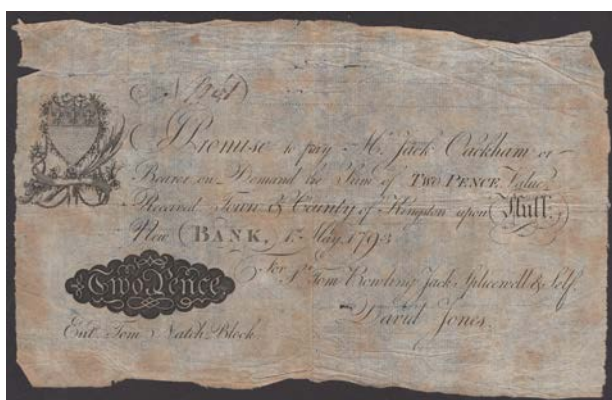 I Promise to pay Mr. Jack Oackham or
Bearer on Demand the Sum of TWO PENCE Value
Received Town & County of Kingston upon Hull.
New BANK, 1st May 1793
For Sr. Tom Bowling Jack Splicewell & Self.
Two Pence
David Jones.
Ent. Tom Natch Block